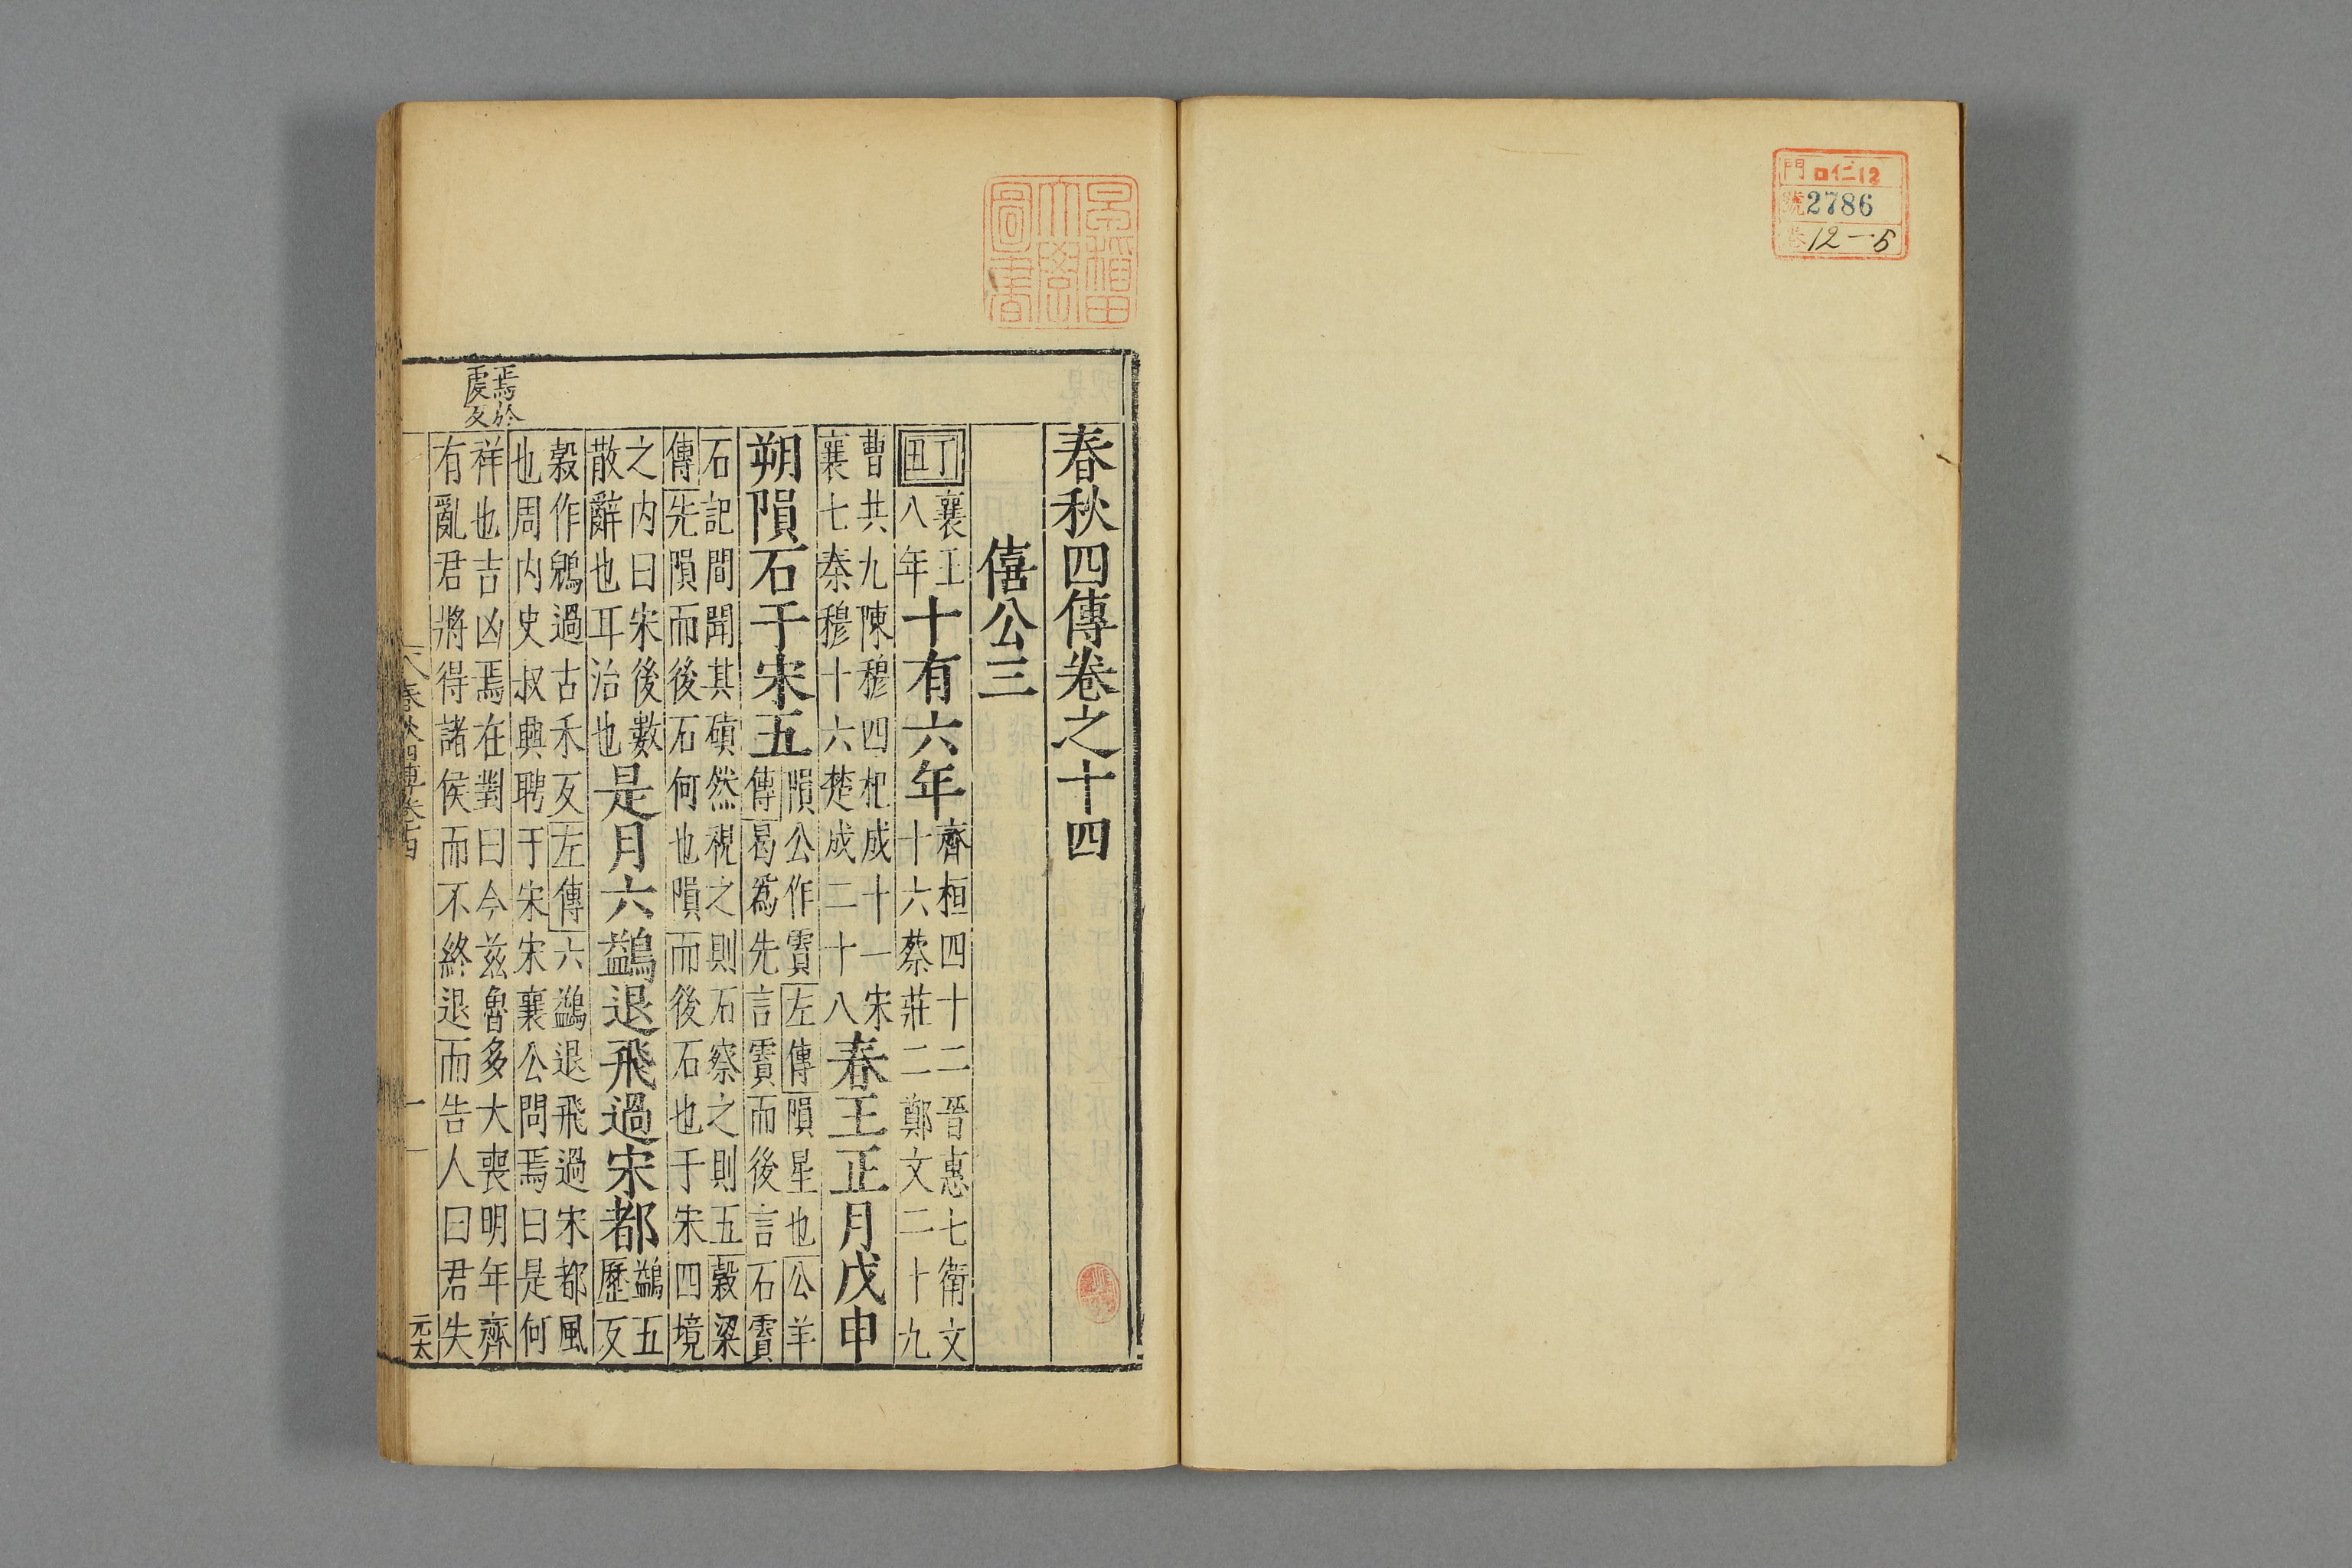 門 口仁12
號 2786
卷 12-5
早稲田
大學
圖書
春秋四傳卷之十四
僖公三
丁丑 襄王八年 十有六年 齊桓四十二晉惠七衛文十六蔡莊二鄭文二十九
曹共九陳穆四杞成十一宋襄七秦穆十六楚成二十八 春王正月戊申
朔隕石于宋五 隕公作霣左傳隕星也公羊傳曷爲先言霣而後言石霣
石記聞聞其磌然視之則石察之則五穀梁傳先隕而後石何也隕而後石也于宋四境
之内曰宋後數散辭也耳治也 是月六鷁退飛過宋都 鷁五歷反
穀作鶂過古禾反左傳六鷁退飛過宋都風也周内史叔興聘于宋宋襄公問焉曰是何
祥也吉凶焉在對曰今兹魯多大喪明年齊有亂君將得諸侯而不終退而告人曰君失
焉於虔反
春秋四傳卷十四
一
元太